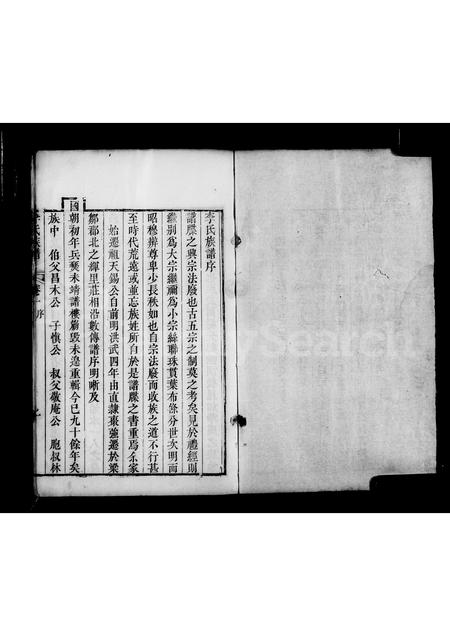 李氏族譜序
譜牒之興宗法廢也古五宗之制莫之考矣見於禮經則
繼別為大宗繼禰為小宗絲聯珠貫葉布條分世次明而
昭穆辨尊卑少長秩如也自宗法廢而收族之道不行甚
至時代荒遠或並忘族姓所自於是譜牒之書重焉余家
始遷祖天錫公自前明洪武四年由直隸棗強遷於梁
鄒郡北之輝里莊相沿數傳譜序明晰及
國朝初年兵燹未靖譜樓篇毀未遑重輯今已九十餘年矣
族中 伯父昌木公 子慎公 叔父敬庵公 胞叔林
李氏族譜 卷一 序